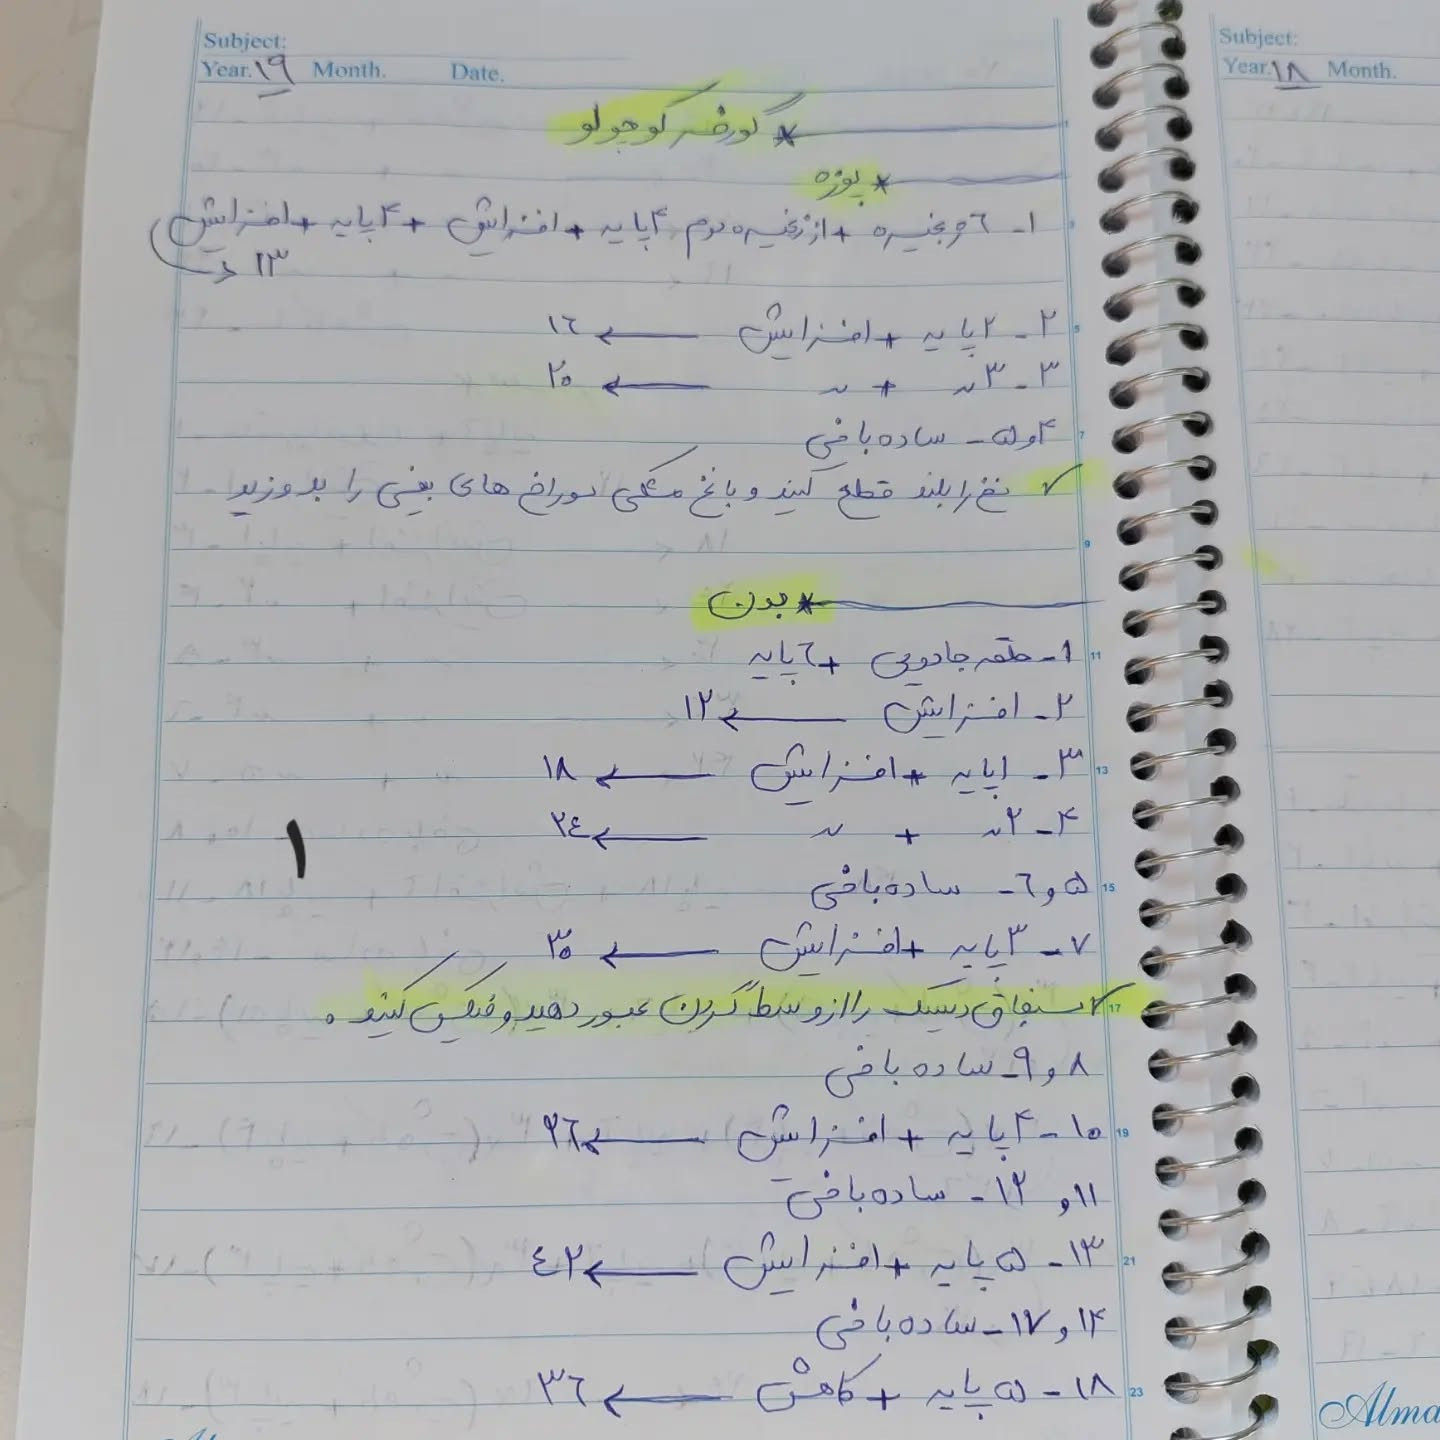 Subject:
Year. ١٩ Month. Date.
* گورخر کوچولو
* پوزه
١- ٦ زنجیره + از زنجیره دوم ۴ پایه + افزایش + ۴ پایه + افزایش
١٣
٢- ٢ پایه + افزایش ← ١٦
٣- ٣ " + " ← ٢٠
۴ و ۵- ساده بافی
✓ نخ را بلند قطع کنید و با نخ مشکی سوراخ های بینی را بدوزید
* بدن
١- حلقه جادویی + ٦ پایه
٢- افزایش ← ١٢
٣- ١ پایه + افزایش ← ١٨
۴- ٢ " + " ← ٢٤
۵ و ٦- ساده بافی
٧- ٣ پایه + افزایش ← ٣٠
✓ دیسک را از وسط گردن عبور دهید و فیکس کنید.
٨ و ٩- ساده بافی
١٠- ۴ پایه + افزایش ← ٣٦
١١ و ١٢- ساده بافی
١٣- ۵ پایه + افزایش ← ٤٢
١۴ و ١٧- ساده بافی
١٨- ۵ پایه + کاهش ← ٣٦
١
Subject:
Year. ١٨ Month.